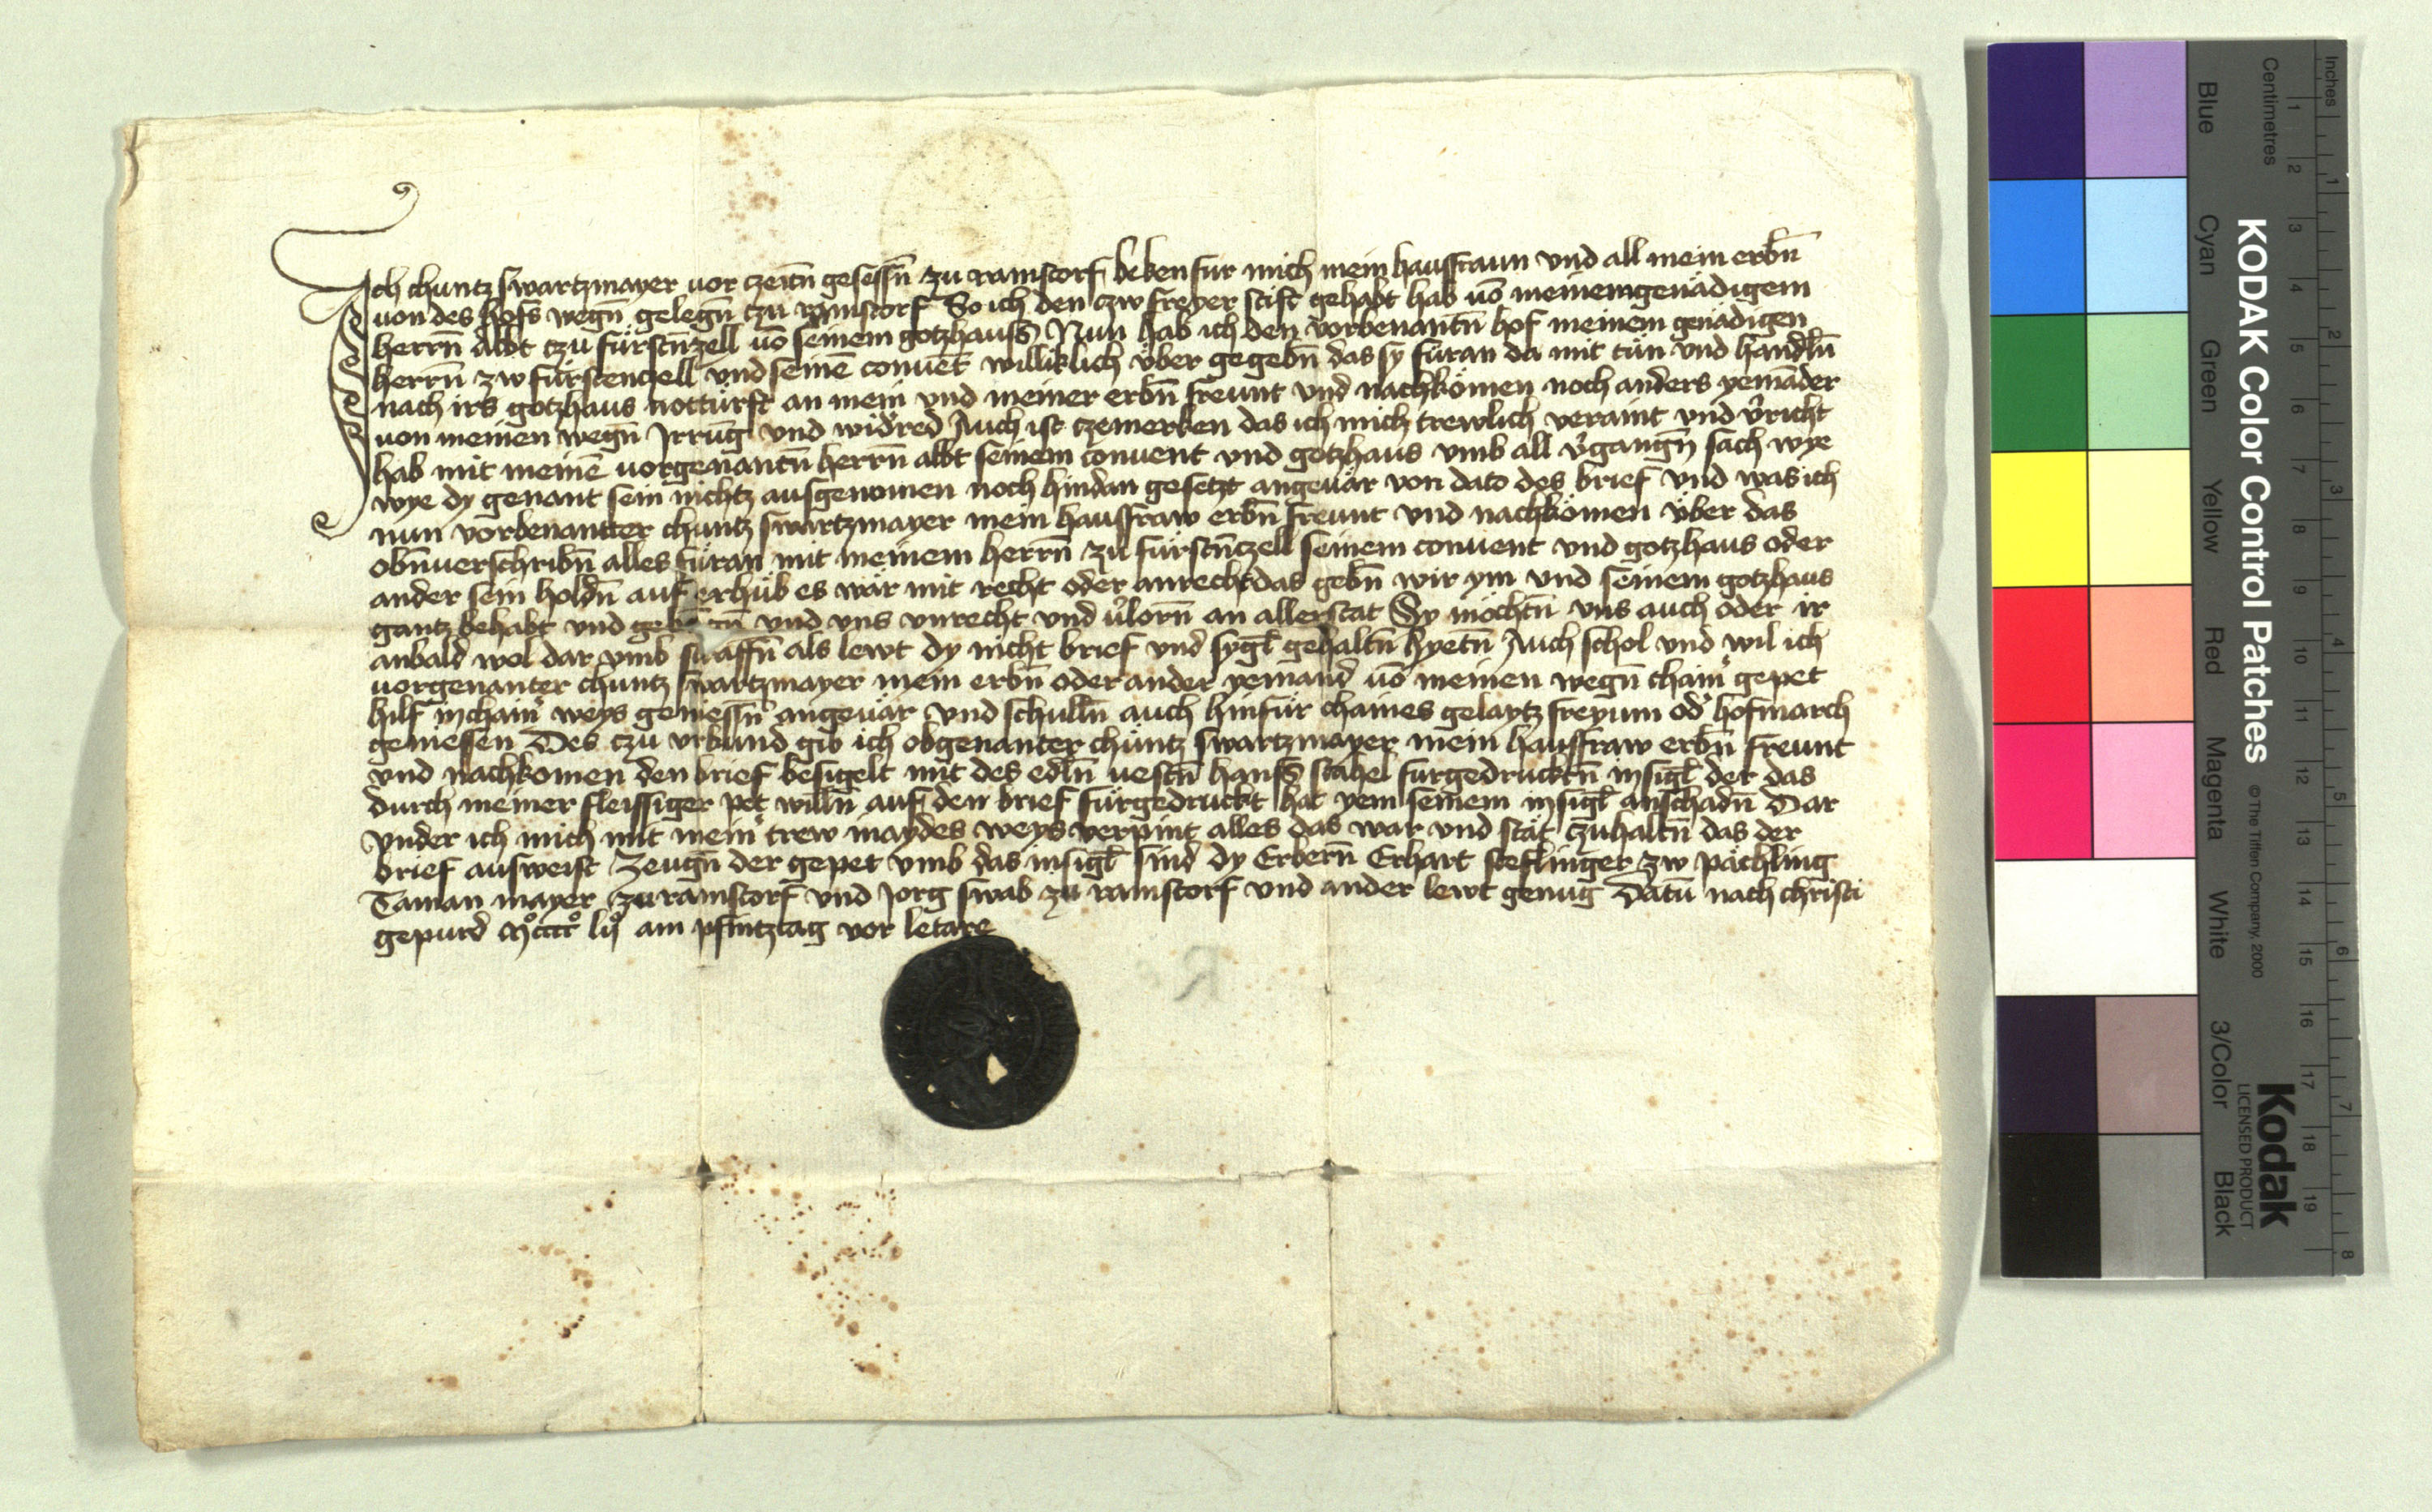 Ich chuntz swartzmayer vor czeitn̄ gesessn̄ zu ramstorf beken fur mich mein hausfraun vnd all mein erbn̄
von des hofs wegn̄ gelegn̄ czu ramstorf So ich den czw freyer stift gehabt hab vō meinem genädigem
herrn̄ abbt czu fürstn̄zell vō seinem gotzhauss Nun hab ich den vorbenantn̄ hof meinem genädigen
herrn̄ zw furstenczell vnd seinē conuēt williklich vber gegebn̄ das sy furan da mit tün vnd handln̄
nach irs gotzhaus notturft an mein vnd meiner erbn̄ freunt vnd nachkömen noch anders yemāder
von meinen wegn̄ Irrūg vnd widred Auch ist czemerken das ich mich trewlich veraint vnd v̉richt
hab mit meinē vorgenantn̄ herrn̄ abbt seinem conuent vnd gotzhaus vmb all v̉gangn̄ sach wye
wye dy genant sein nichtz ausgenomen noch hindan gesetzt angeuär von dato des brief vnd was ich
nun vorbenantter chuntz swartzmayer mein hausfraw erbn̄ freunt vnd nachkömen über das
obn̄uerschribn̄ alles füran mit meinem herrn̄ zu fürstn̄czell seinem conuent vnd gotzhaus oder
ander sein holdn̄ auf erhüb es wär mit recht oder anrecht das gebn̄ wir ym vnd seinem gotzhaus
gantz behabt vnd vnd vns vnrecht vnd v̉lorn̄ an aller stat Sy möchtn̄ vns auch oder ir
anbald wol dar vmb straffn̄ als lewt dy nicht brief vnd sygl̄ gehaltn̄ hyetn̄ Auch schol vnd wil ich
vorgenanter chuntz swartzmayer mein erbn̄ oder ander yemand vō meinen wegn̄ chain̉ gepet
hilf in chain̉ weys geniessn̄ angeuär vnd schulln̄ auch hinfür chaines gelaytz freyum od̉ hofmarch
geniessen Des czu vrkund gib ich obgenanter chüntz swartzmayer mein hausfraw erbn̄ freunt
vnd nachkomen den brief besigelt mit des edln̄ vestn̄ hanss stahel furgedrucktn̄ insigl̄ der das
durch meiner fleissiger pet willn̄ auf den brief fürgedruckt hat yem seinem insigl̄ anschadn̄ Dar
vnder ich mich mit mein̉ trew in aydes weys verpint alles das war vnd stät czuhaltn̄ das der
brief ausweist Zeugn̄ der gepet vmb das insigl̄ sind dy Erbern̄ Erhart steflinger zw pächling
Taman mayer zu ramstorf vnd Jorg swab zu ramstorf vnd ander lewt genug Datū nach christi
gepurd am pfintztag vor letare
KODAK Color Control Patches
© The Tiffen Company, 2000
Kodak
LICENSED PRODUCT
Inches
Centimetres
1 2 3 4 5 6 7 8
1 2 3 4 5 6 7 8 9 10 11 12 13 14 15 16 17 18 19
Blue
Cyan
Green
Yellow
Red
Magenta
White
3/Color
Black